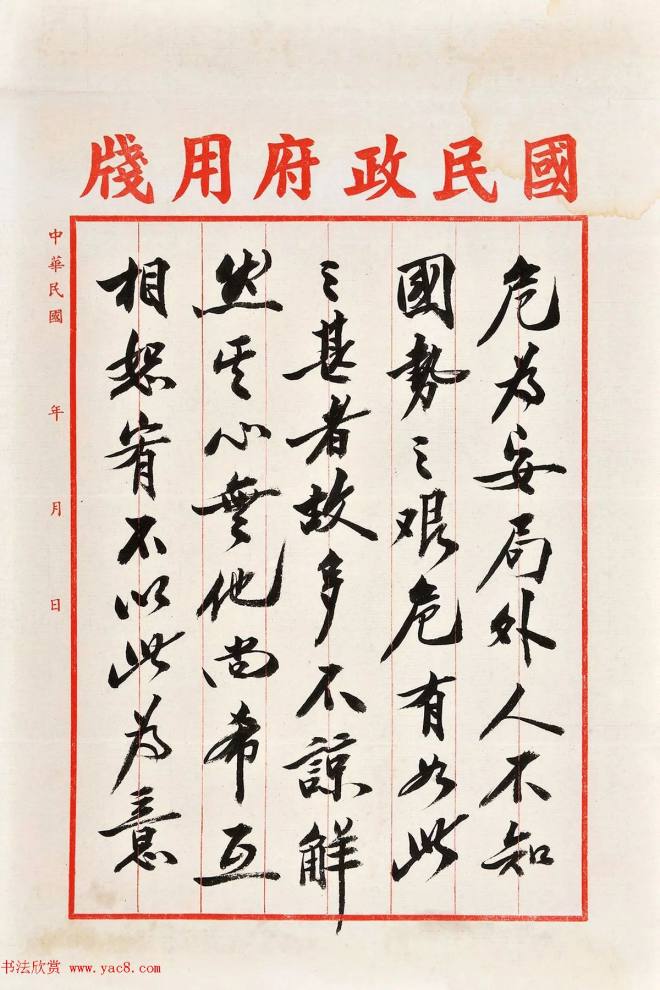 國民政府用牋
危為安局外人不知
國勢之艱危有如此
之甚者故多不諒解
然其心無他尚希互
相恕宥不以此為意
中華民國 年 月 日
书法欣赏 www.yac8.com